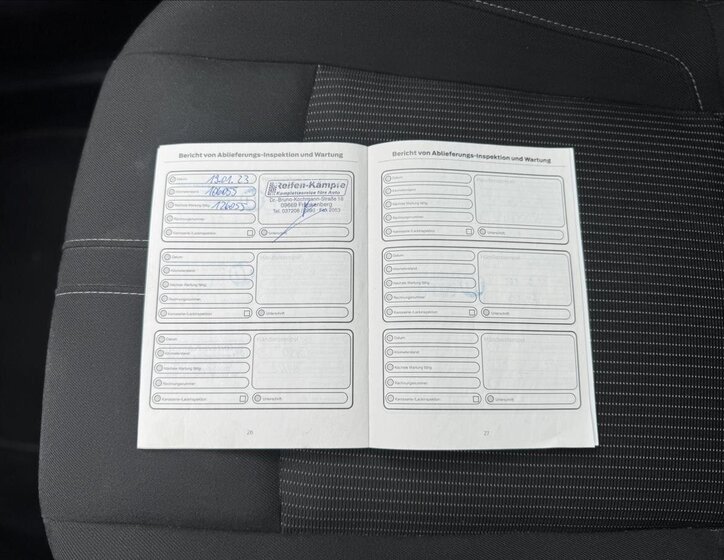 Bericht von Ablieferungs-Inspektion und Wartung
Datum 19.01.23
Kilometerstand 106055
Nächste Wartung fällig 126055
Rechnungsnummer
Karosserie-/Lackinspektion
Reifen-Kämpfe
Komplettservice fürs Auto
Dr.-Bruno-Kochmann-Straße
09669 Frankenberg
Unterschrift
Datum
Kilometerstand
Nächste Wartung fällig
Rechnungsnummer
Karosserie-/Lackinspektion
Händlerstempel
Unterschrift
Datum
Kilometerstand
Nächste Wartung fällig
Rechnungsnummer
Karosserie-/Lackinspektion
Händlerstempel
Unterschrift
26
Bericht von Ablieferungs-Inspektion und Wartung
Datum
Kilometerstand
Nächste Wartung fällig
Rechnungsnummer
Karosserie-/Lackinspektion
Händlerstempel
Unterschrift
Datum
Kilometerstand
Nächste Wartung fällig
Rechnungsnummer
Karosserie-/Lackinspektion
Händlerstempel
Unterschrift
Datum
Kilometerstand
Nächste Wartung fällig
Rechnungsnummer
Karosserie-/Lackinspektion
Händlerstempel
Unterschrift
27